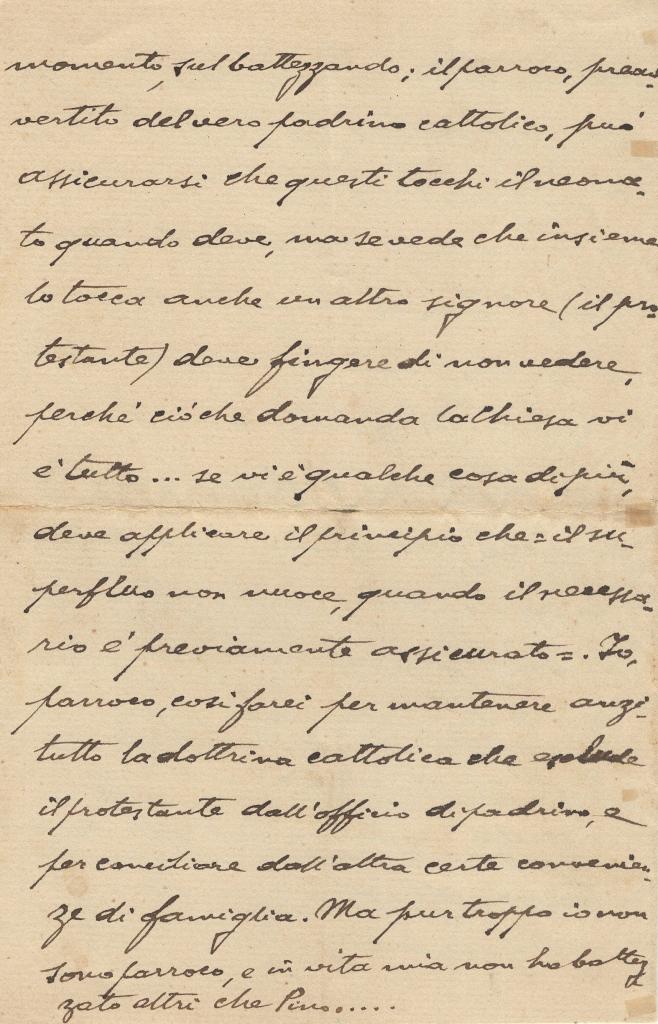 momento, sul battezzando; il parroco, preav-
vertito del vero padrino cattolico, può
assicurarsi che questi tocchi il neona-
to quando deve, ma se vede che insieme
lo tocca anche un altro signore (il pro-
testante) deve fingere di non vedere,
perché ciò che domanda la Chiesa vi
è tutto... se vi è qualche cosa di più,
deve applicare il principio che = il su-
perfluo non nuoce, quando il necessa-
rio è previamente assicurato =. Io,
parroco, così farei per mantenere anzi-
tutto la dottrina cattolica che esclude
il protestante dall'officio di padrino, e
per conciliare dall'altra certe convenien-
ze di famiglia. Ma pur troppo io non
sono parroco, e in vita mia non ho battez
zato altri che Pino.....